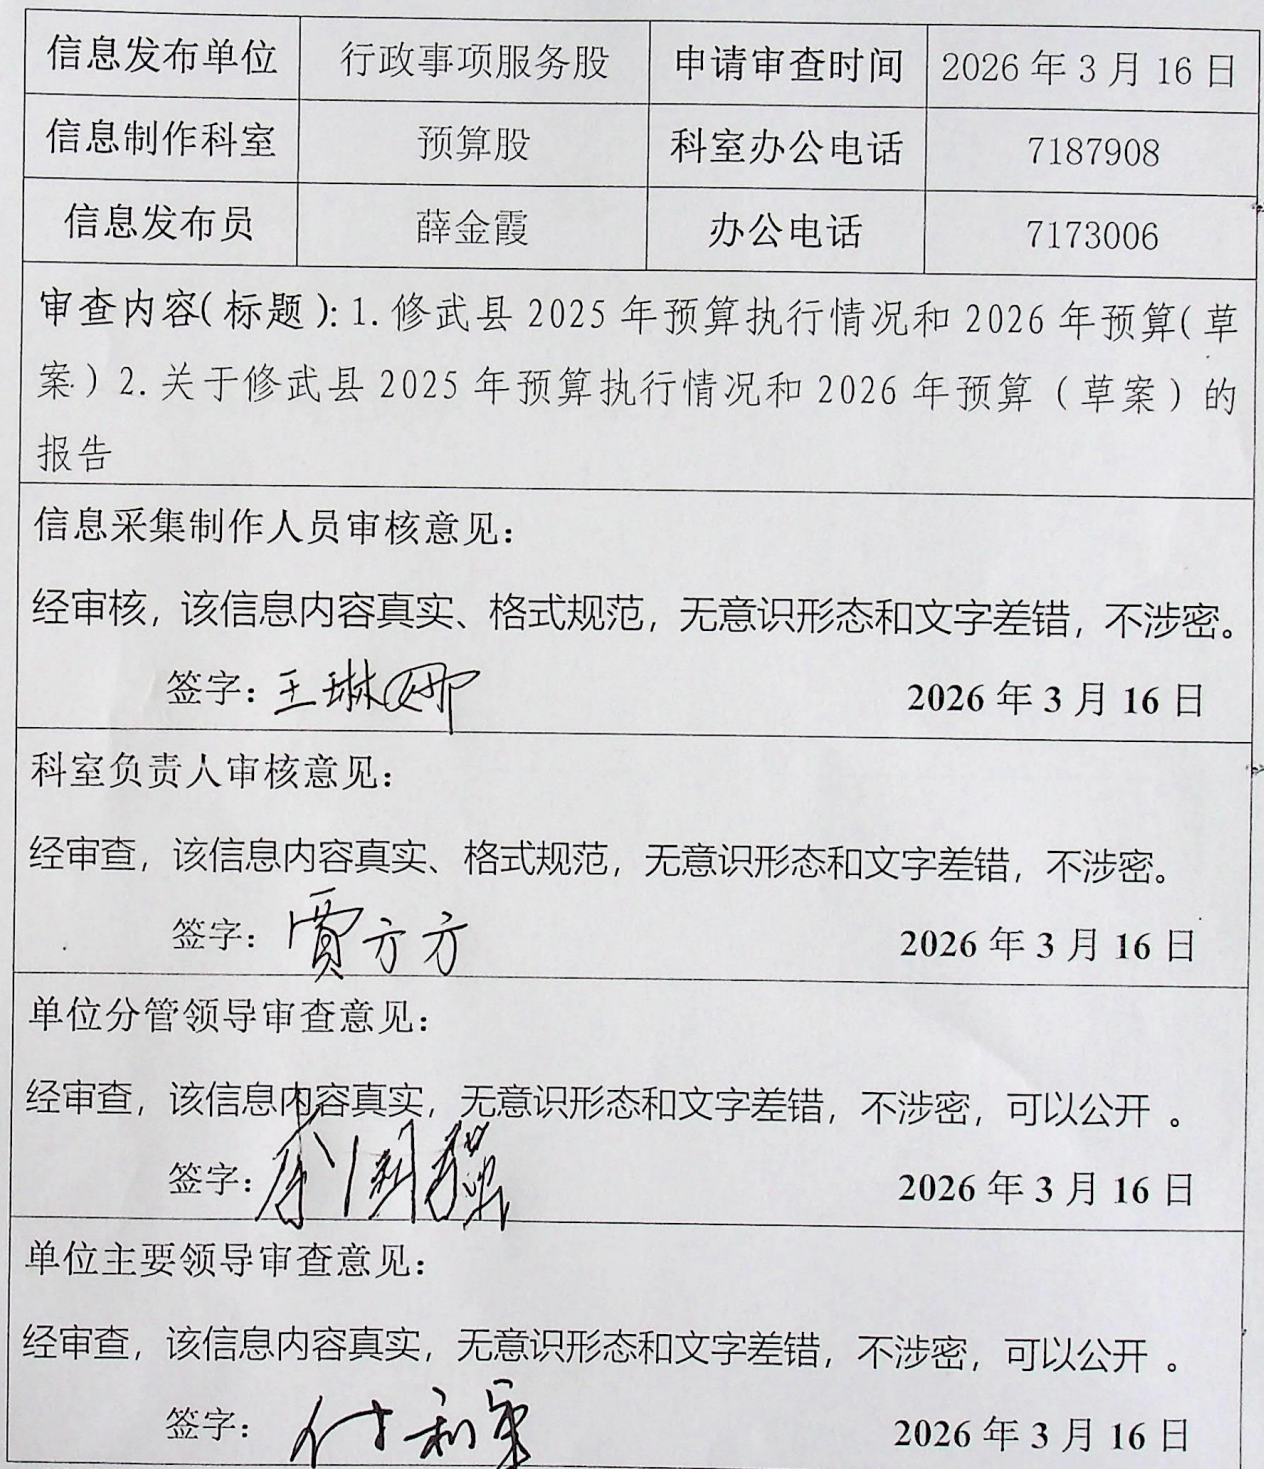 信息发布单位 行政事项服务股 申请审查时间 2026年3月16日
信息制作科室 预算股 科室办公电话 7187908
信息发布员 薛金霞 办公电话 7173006
审查内容(标题):1.修武县2025年预算执行情况和2026年预算(草
案)2.关于修武县2025年预算执行情况和2026年预算(草案)的
报告
信息采集制作人员审核意见:
经审核，该信息内容真实、格式规范，无意识形态和文字差错，不涉密。
签字:王琳娜 2026年3月16日
科室负责人审核意见:
经审查，该信息内容真实、格式规范，无意识形态和文字差错，不涉密。
签字:贾方方 2026年3月16日
单位分管领导审查意见:
经审查，该信息内容真实，无意识形态和文字差错，不涉密，可以公开 。
签字: 2026年3月16日
单位主要领导审查意见:
经审查，该信息内容真实，无意识形态和文字差错，不涉密，可以公开 。
签字: 2026年3月16日